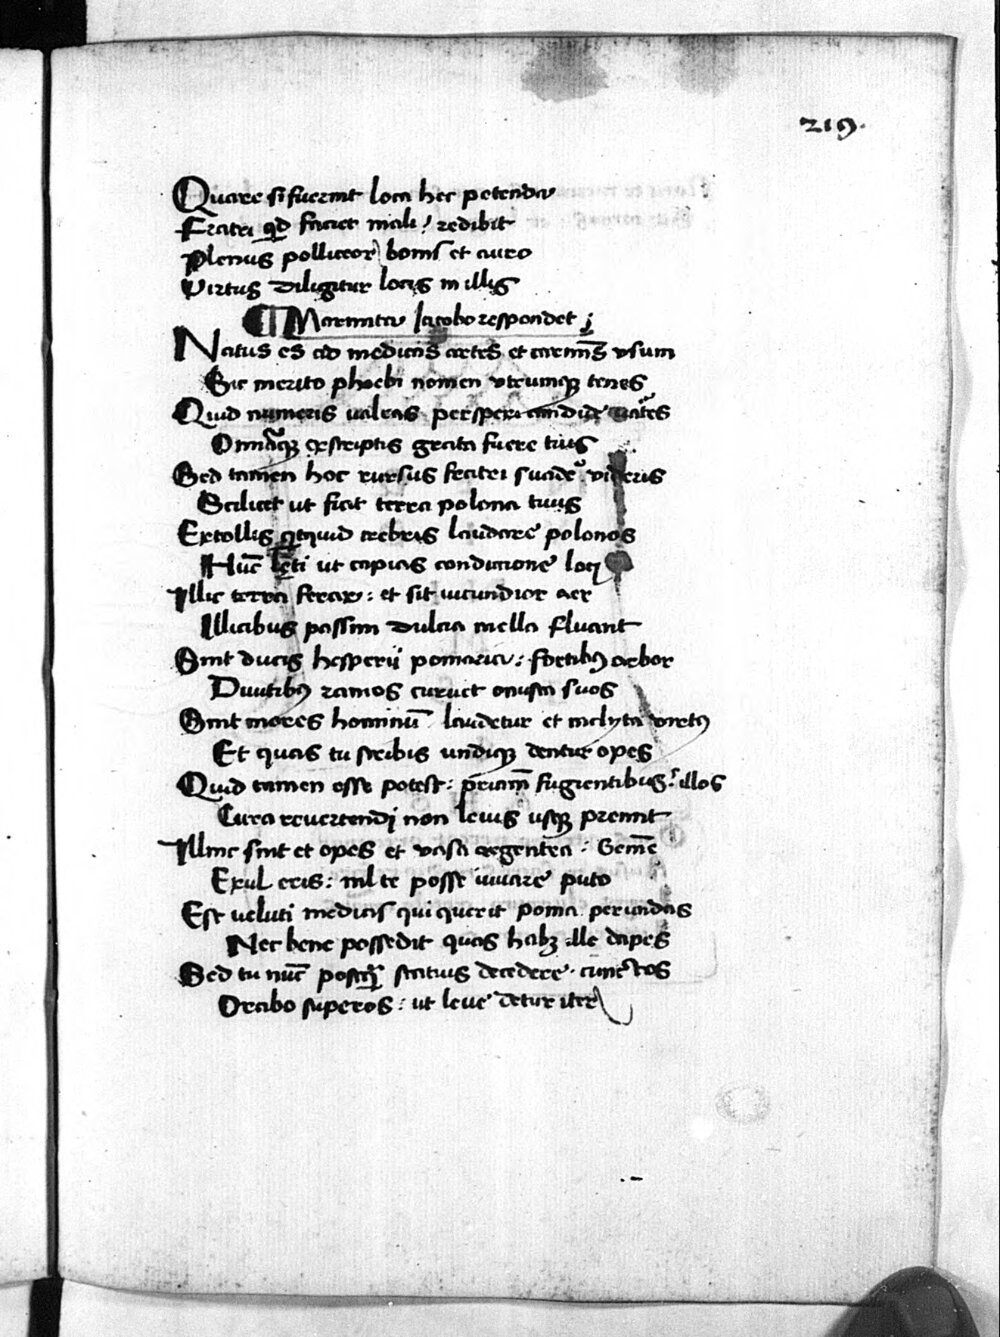 219.
Quare si fuerint loca hec petenda
Fratri qd faciet mali? redibit
Plenus polliceor bonis et auro
Virtus diligitur locis in illis
Marmita Iacobo respondet
Natus es ad medicas artes et carminis vsum
Sic merito phoebi nomen vtrumq tenes
Quid numeris ualeas perspexi candide uates
Omniaq ex scriptis grata fuere tuis
Sed tamen hoc rursus fratri suadere videris
Scilicet ut fiat terra polona tuus
Extollis quicquid crebris laudare polonos
Hunc ut capias conditione loci
Illic terra ferax: et sit iucundior aer
Illicibus passim dulcia mella fluant
Sint ducis hesperii pomaria: fertilibus arbor
Diuitibus ramos curuet onusta suos
Sint mores hominum laudetur et inclyta virtus
Et quas tu scribis undiq dentur opes
Quid tamen esse potest: priam fugientibus? illos
Cura reuertendi non leuis usq premit
Illinc sint et opes et vasa argentea: Geme
Exul eris: nil te posse iuuare puto
Est ueluti medias qui querit poma per undas
Nec bene possedit quas habz ille dapes
Sed tu nunc postq statuis decedere
Orabo superos: ut leue detur iter